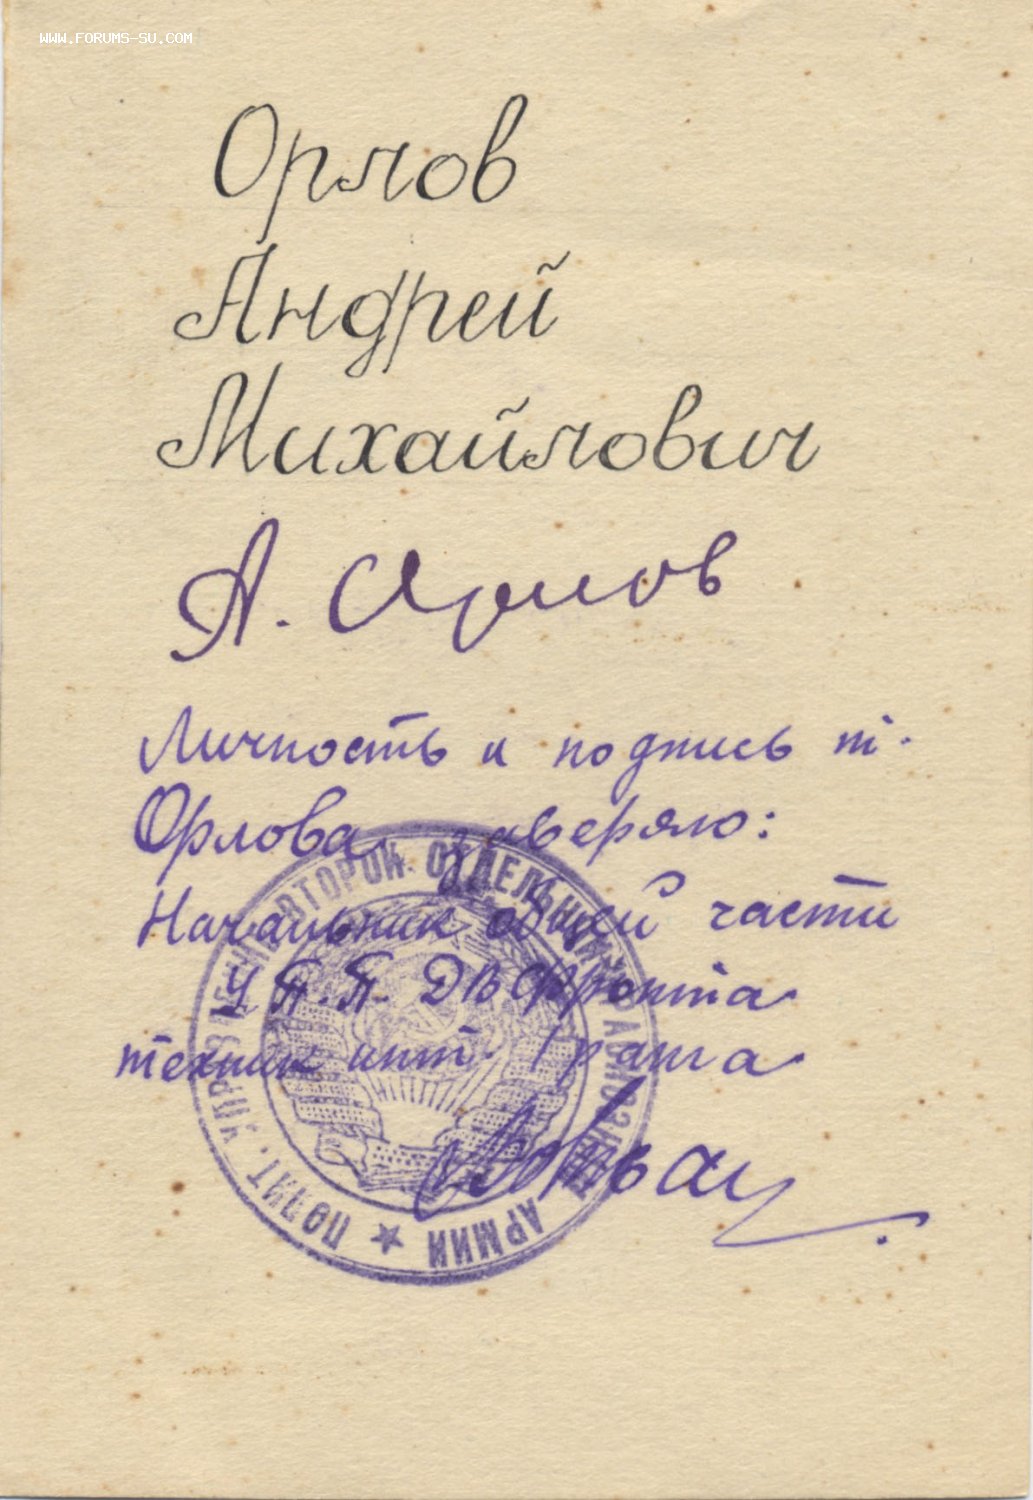 WWW.FORUMS-SU.COM
Орлов
Андрей
Михайлович
А. Орлов
Личность и подпись т.
Орлова заверяю:
Начальник общей части
У П.П. ДВ Фронта
техник инт. 1 ранга
ПОЛИТ. УПРАВЛЕНИЕ ВТОРОЙ ОТДЕЛЬНОЙ КРАСНОЗНАМ. АРМИИ